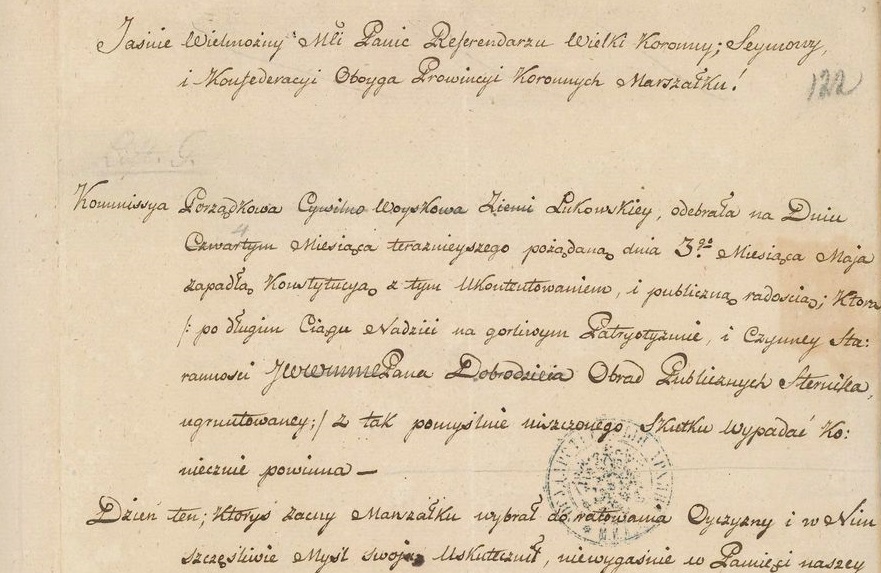 Jaśnie Wielmożny Mći Panie Referendarzu Wielki Koronny; Seymowy,
i Konfederacyi Oboyga Prowincyi Koronnych Marszałku!
122
Lit. G.
Kommissya Porządkowa Cywilno Woyskowa Ziemi Łukowskiey, odebrała na Dniu
4
Czwartym Miesiąca teraznieyszego pożądaną dnia 3go Miesiąca Maja
zapadłą Konstytucyą z tym Ukontentowaniem, i publiczną radością; Która
/: po długim Ciągu Nadziei na gorliwym Patryotyzmie, i Czynney Sta:
ranności JWWmmPana Dobrodzieia Obrad Publicznych Sternika,
ugruntowaney;/ z tak pomyślnie niszczonego Skutku wypadać Ko:
niecznie powinna —
Dzień ten; Któryś zacny Marszałku wybrał do ratowania Oyczyzny i w Nim
szczęśliwie Myśl swoją Uskutecznił, niewygaśnie w Pamięci naszey